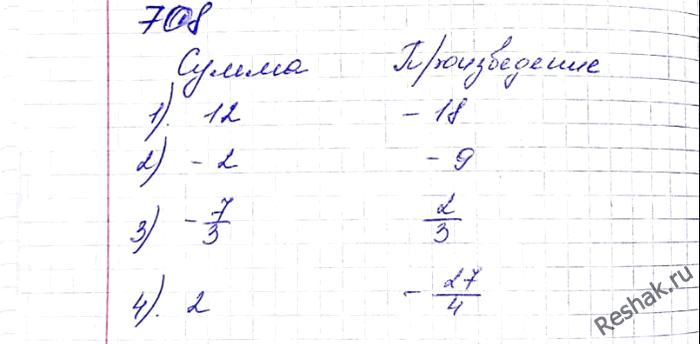 708
Сумма Произведение
1). 12 - 18
2) - 2 - 9
3) - 7/3 2/3
4). 2 - 27/4
Reshak.ru